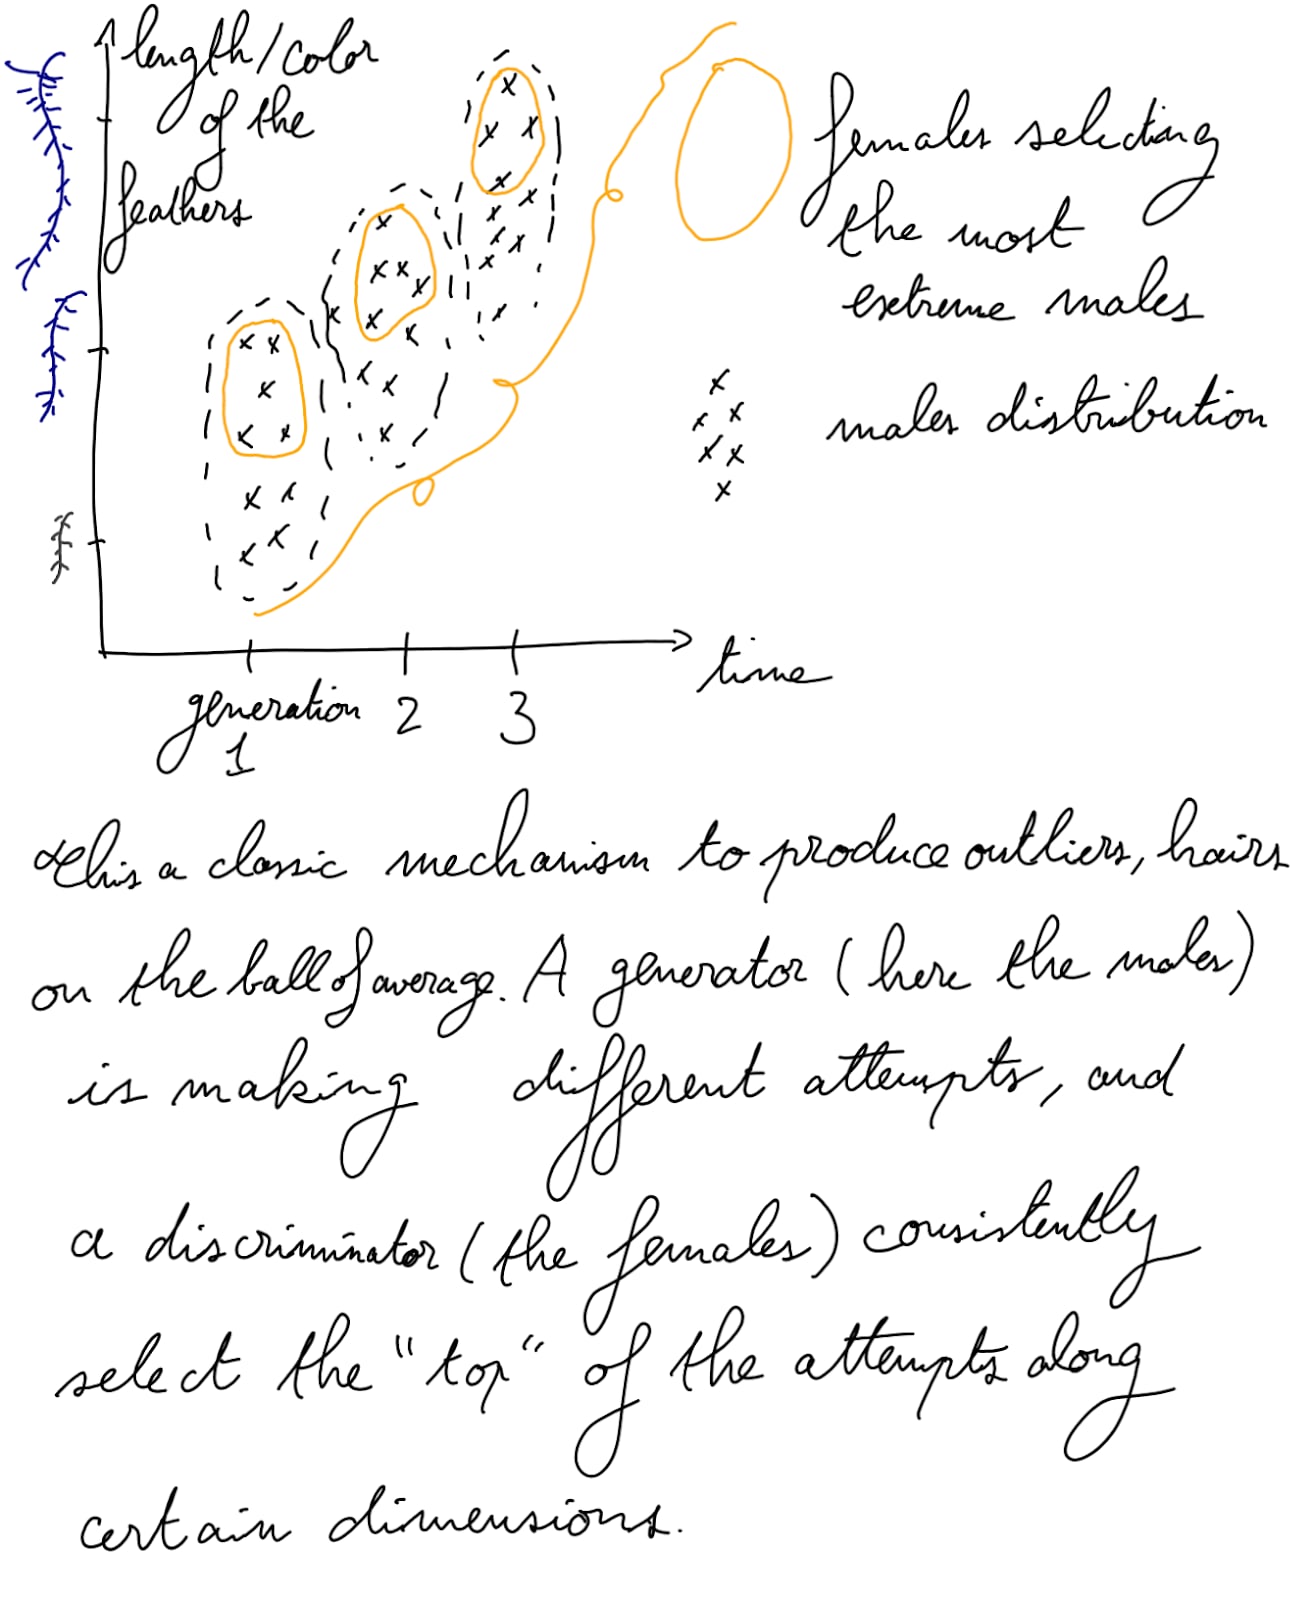 length/color
of the
feathers
females selecting
the most
extreme males
males distribution
time
generation 2 3
1
This a classic mechanism to produce outliers, hairs
on the ball of average. A generator (here the males)
is making different attempts, and
a discriminator (the females) consistently
select the "top" of the attempts along
certain dimensions.